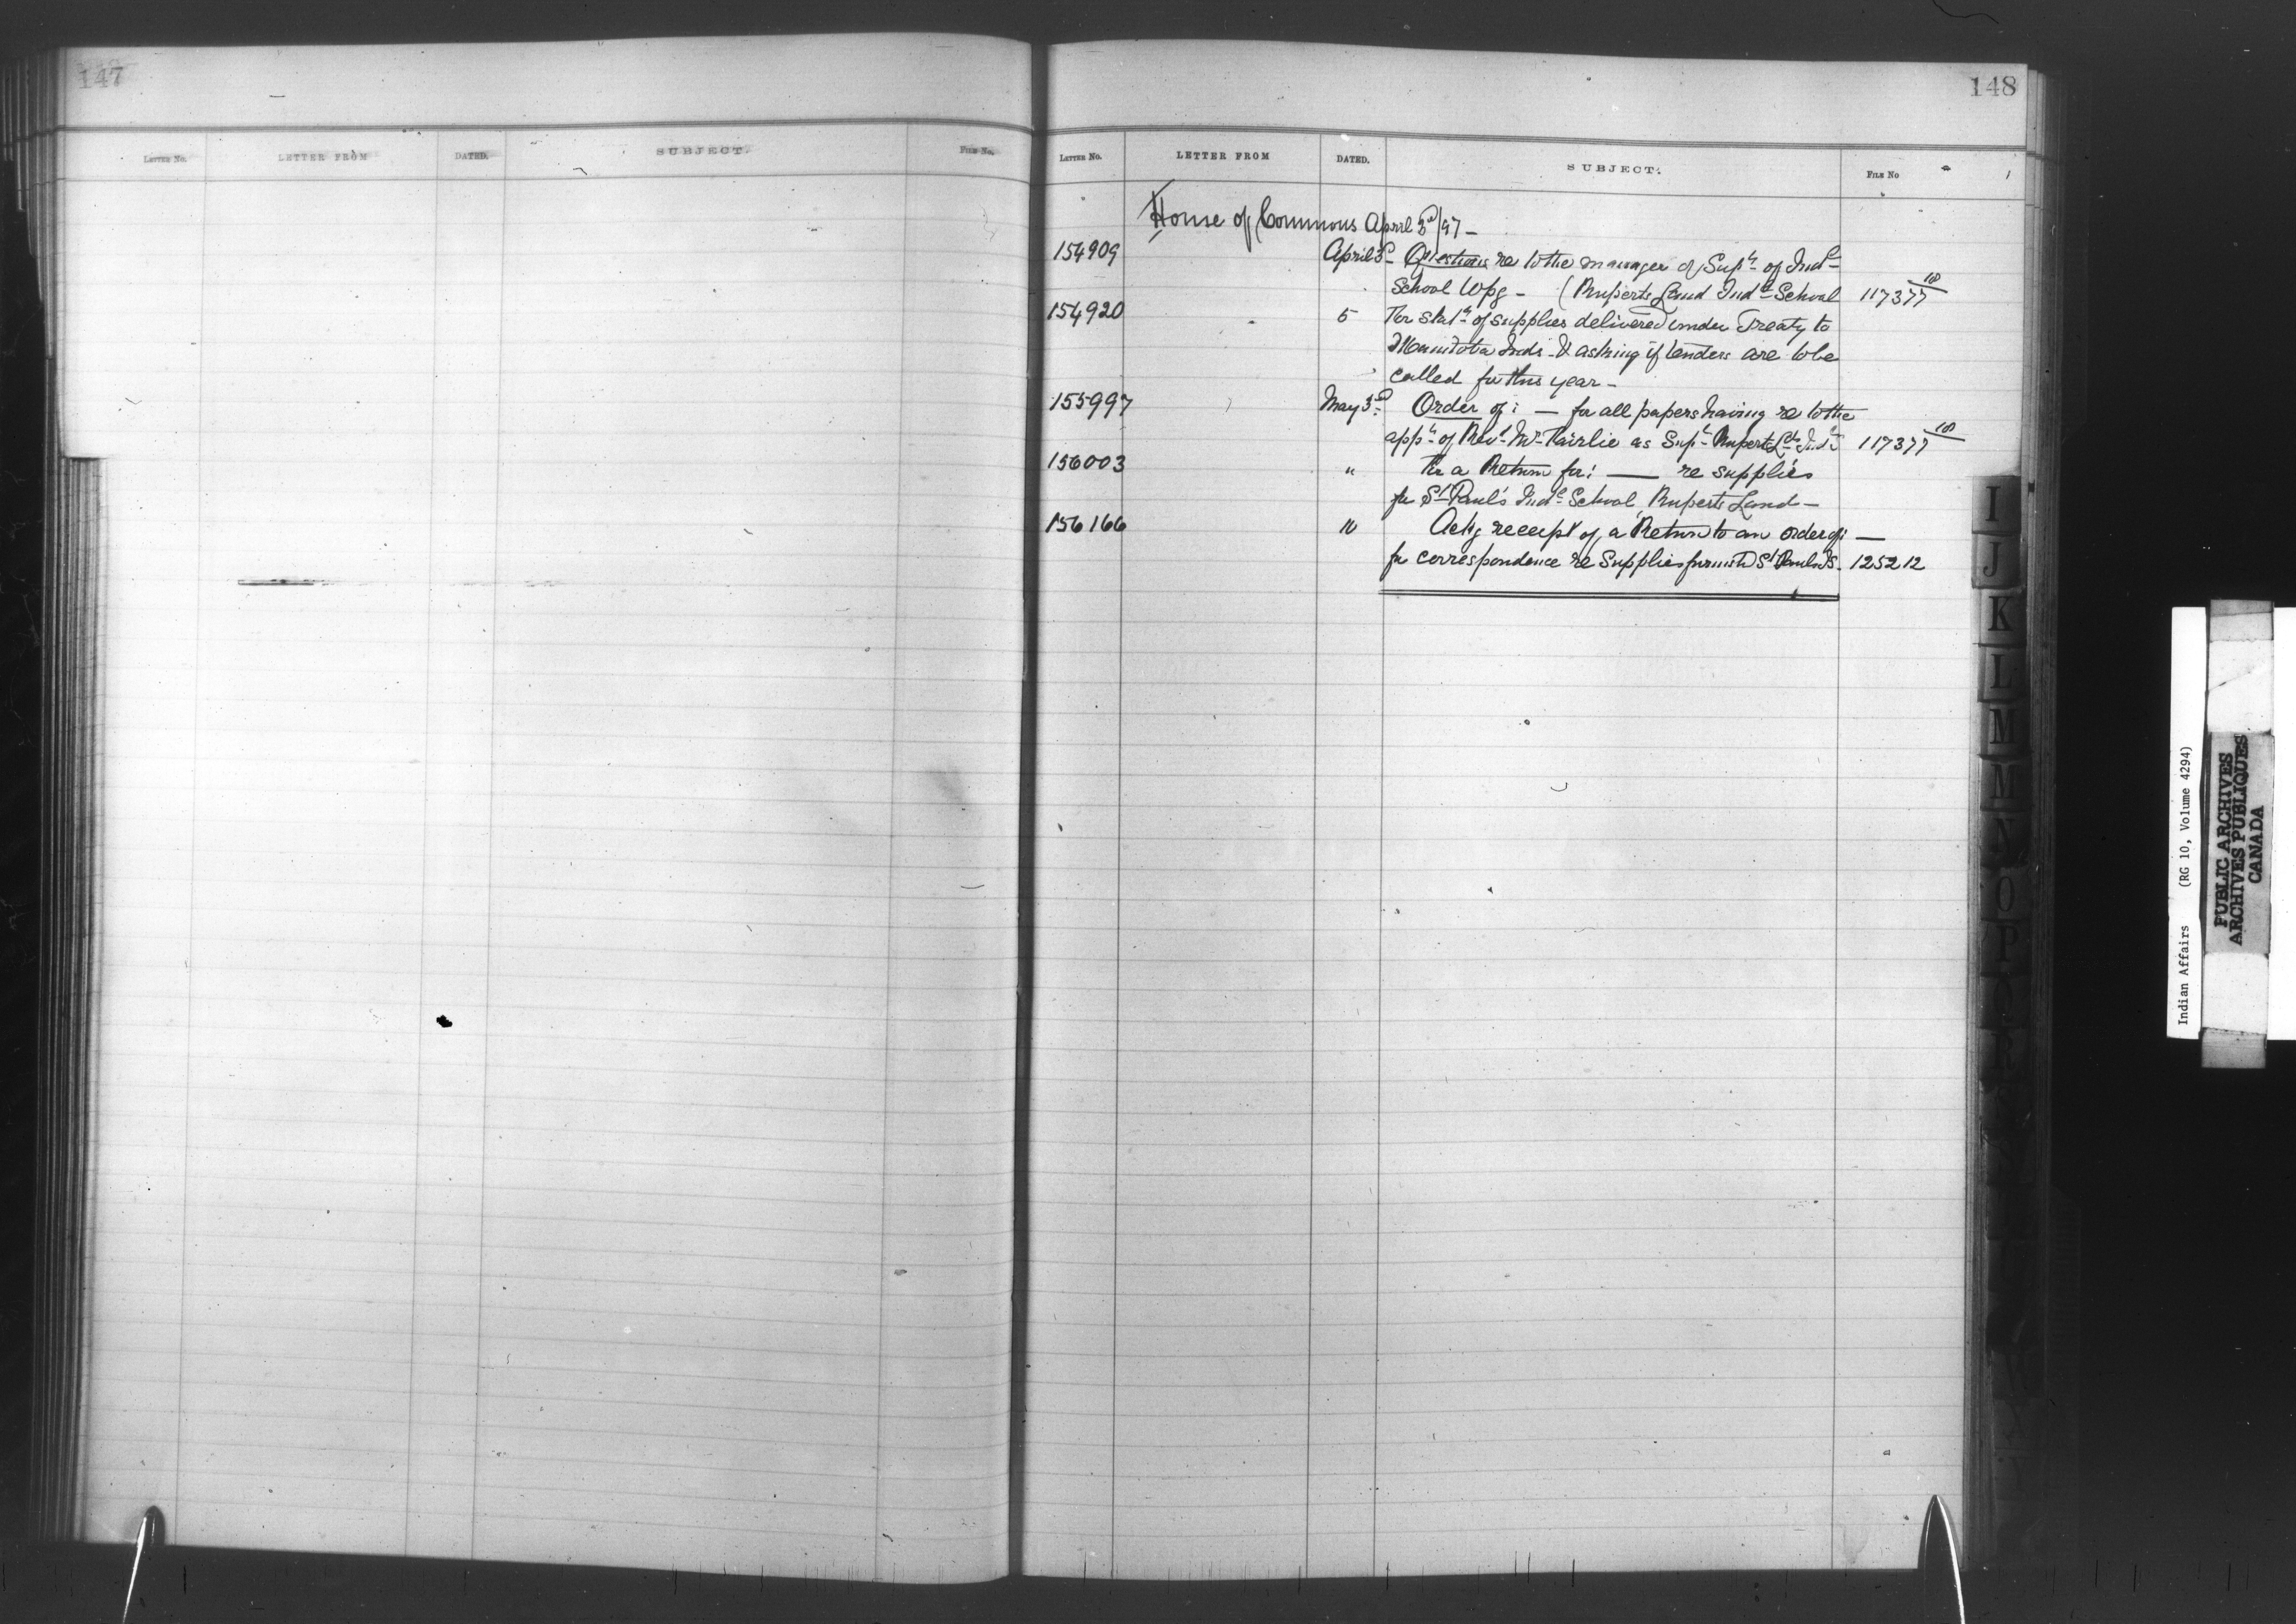 147
LETTER No. LETTER FROM DATED. SUBJECT. FILE No.
148
LETTER No. LETTER FROM DATED. SUBJECT. FILE No
House of Commons April 3d/97 –
154909 April 3d – Questions re to the manager of Supt of Indl
School Wpg – (Ruperts Land Indl School 117377 10
154920 5 For Statt of supplies delivered under Treaty to
Manitoba Inds & asking if tenders are to be
called for this year –
155997 May 3d Order of: — for all papers having re to the
appt of Revd Mr Fairlie as Supt Ruperts Ld Indl S 117377 10
156003 " For a Return for: — re supplies
for St Paul's Indl School, Ruperts Land –
156166 10 Ackg receipt of a Return to an order of: —
for correspondence re Supplies furnishd St Pauls I.S. 125212
I
J
K
L
M
M
N
O
P
Q
R
Indian Affairs (RG 10, Volume 4294)
PUBLIC ARCHIVES
ARCHIVES PUBLIQUES
CANADA